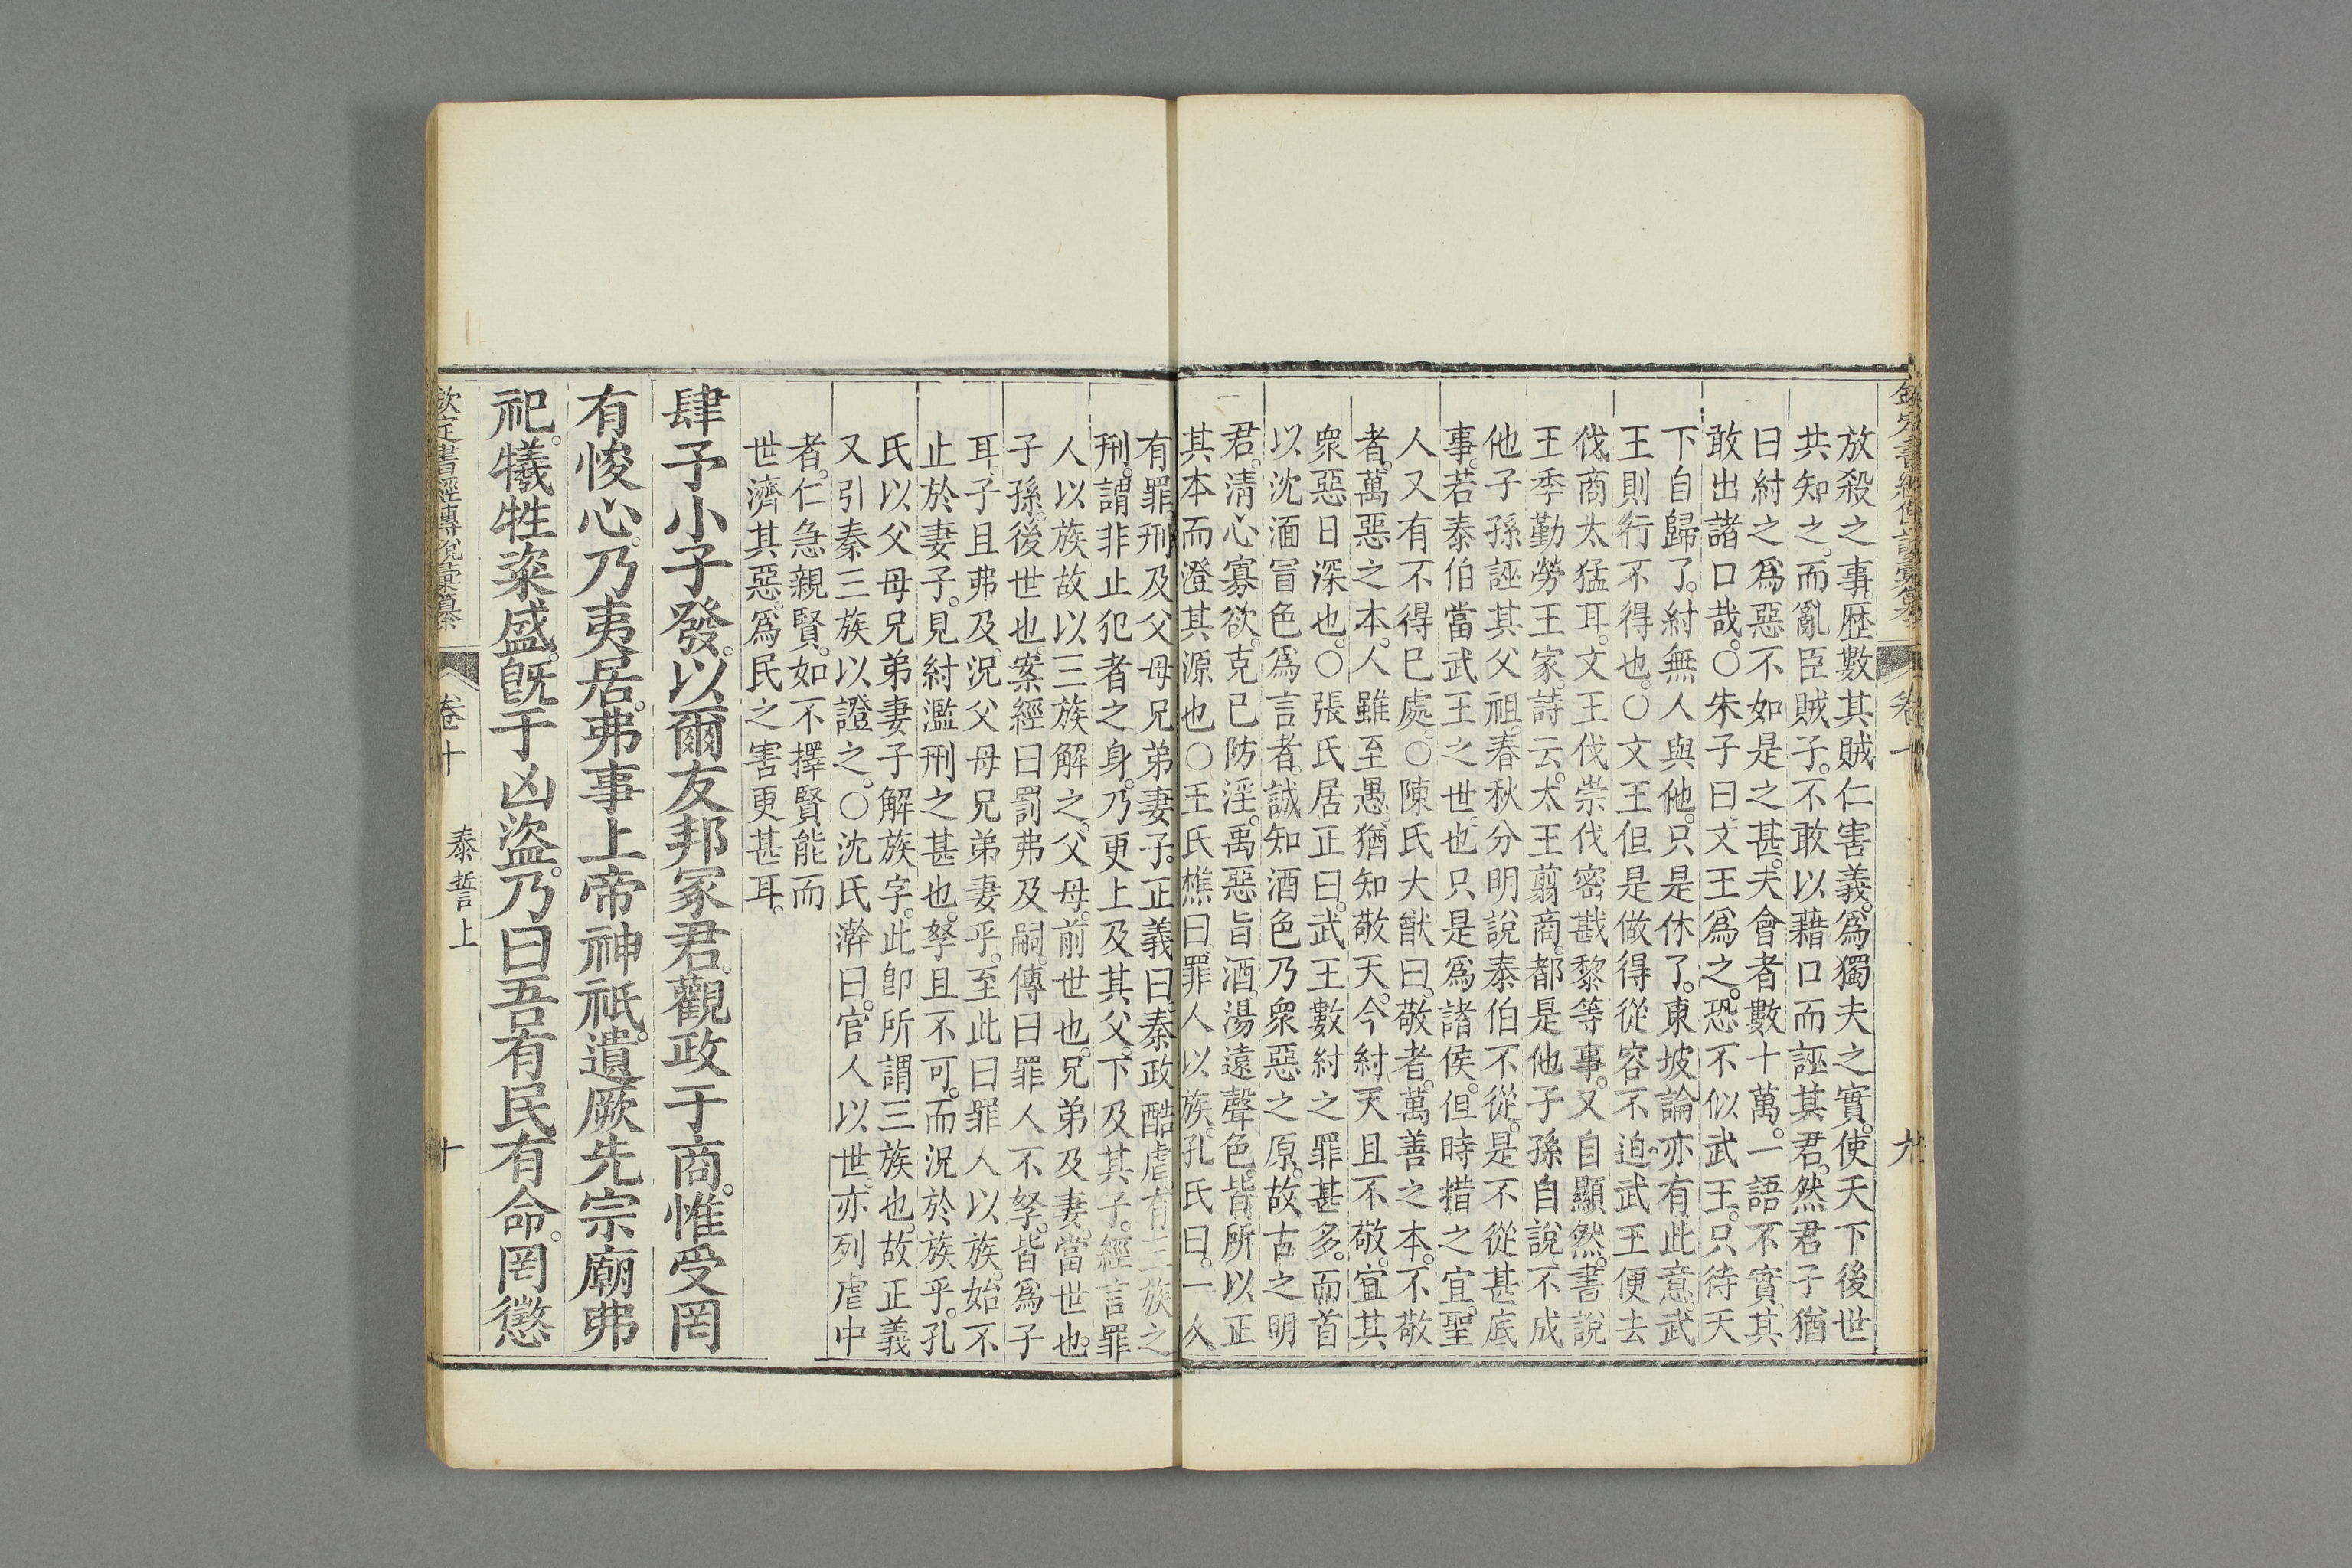 欽定書經傳說彙纂 卷十 九
放殺之事。歷數其賊仁害義。爲獨夫之實。使天下後世
共知之。而亂臣賊子。不敢以藉口而誣其君。然君子猶
曰紂之爲惡不如是之甚。夫會者數十萬。一語不實。其
敢出諸口哉。○朱子曰。文王爲之。恐不似武王。只待天
下自歸了。紂無人與他。只是休了。東坡論亦有此意。武
王則行不得也。○文王但是做得從容不迫。武王便去
伐商太猛耳。文王伐崇伐密戡黎等事。又自顯然。書說
王季勤勞王家。詩云。太王翦商。都是他子孫自說。不成
他子孫誣其父祖。春秋分明說泰伯不從。是不從甚底
事。若泰伯當武王之世也只是爲諸侯。但時措之宜。聖
人又有不得已處。○陳氏大猷曰。敬者。萬善之本。不敬
者。萬惡之本。人雖至愚。猶知敬天。今紂天且不敬。宜其
衆惡日深也。○張氏居正曰。武王數紂之罪甚多。而首
以沈湎冒色爲言者。誠知酒色乃衆惡之原。故古之明
君。清心寡欲。克已防淫。禹惡旨酒。湯遠聲色。皆所以正
其本而澄其源也○王氏樵曰。罪人以族。孔氏曰。一人
有罪。刑及父母兄弟妻子。正義曰。秦政酷虐。有三族之
刑。謂非止犯者之身。乃更上及其父。下及其子。經言罪
人以族。故以三族解之。父母。前世也。兄弟及妻。當世也。
子孫。後世也。案經曰罰弗及嗣。傳曰罪人不孥。皆爲子
耳。子且弗及。況父母兄弟妻子乎。至此曰罪人以族。始不
止於妻子。見紂濫刑之甚也。孥且不可。而況於族乎。孔
氏以父母兄弟妻子解族字。此卽所謂三族也。故正義
又引秦三族以證之。○沈氏澣曰。官人以世。亦列虐中
者。仁急親賢。如不擇賢能而
世濟其惡。爲民之害更甚耳。
肆予小子發。以爾友邦冢君。觀政于商。惟受罔
有悛心。乃夷居。弗事上帝神祇。遺厥先宗廟弗
祀。犧牲粢盛。旣于凶盜。乃曰吾有民有命。罔懲
欽定書經傳說彙纂 卷十 泰誓上 十